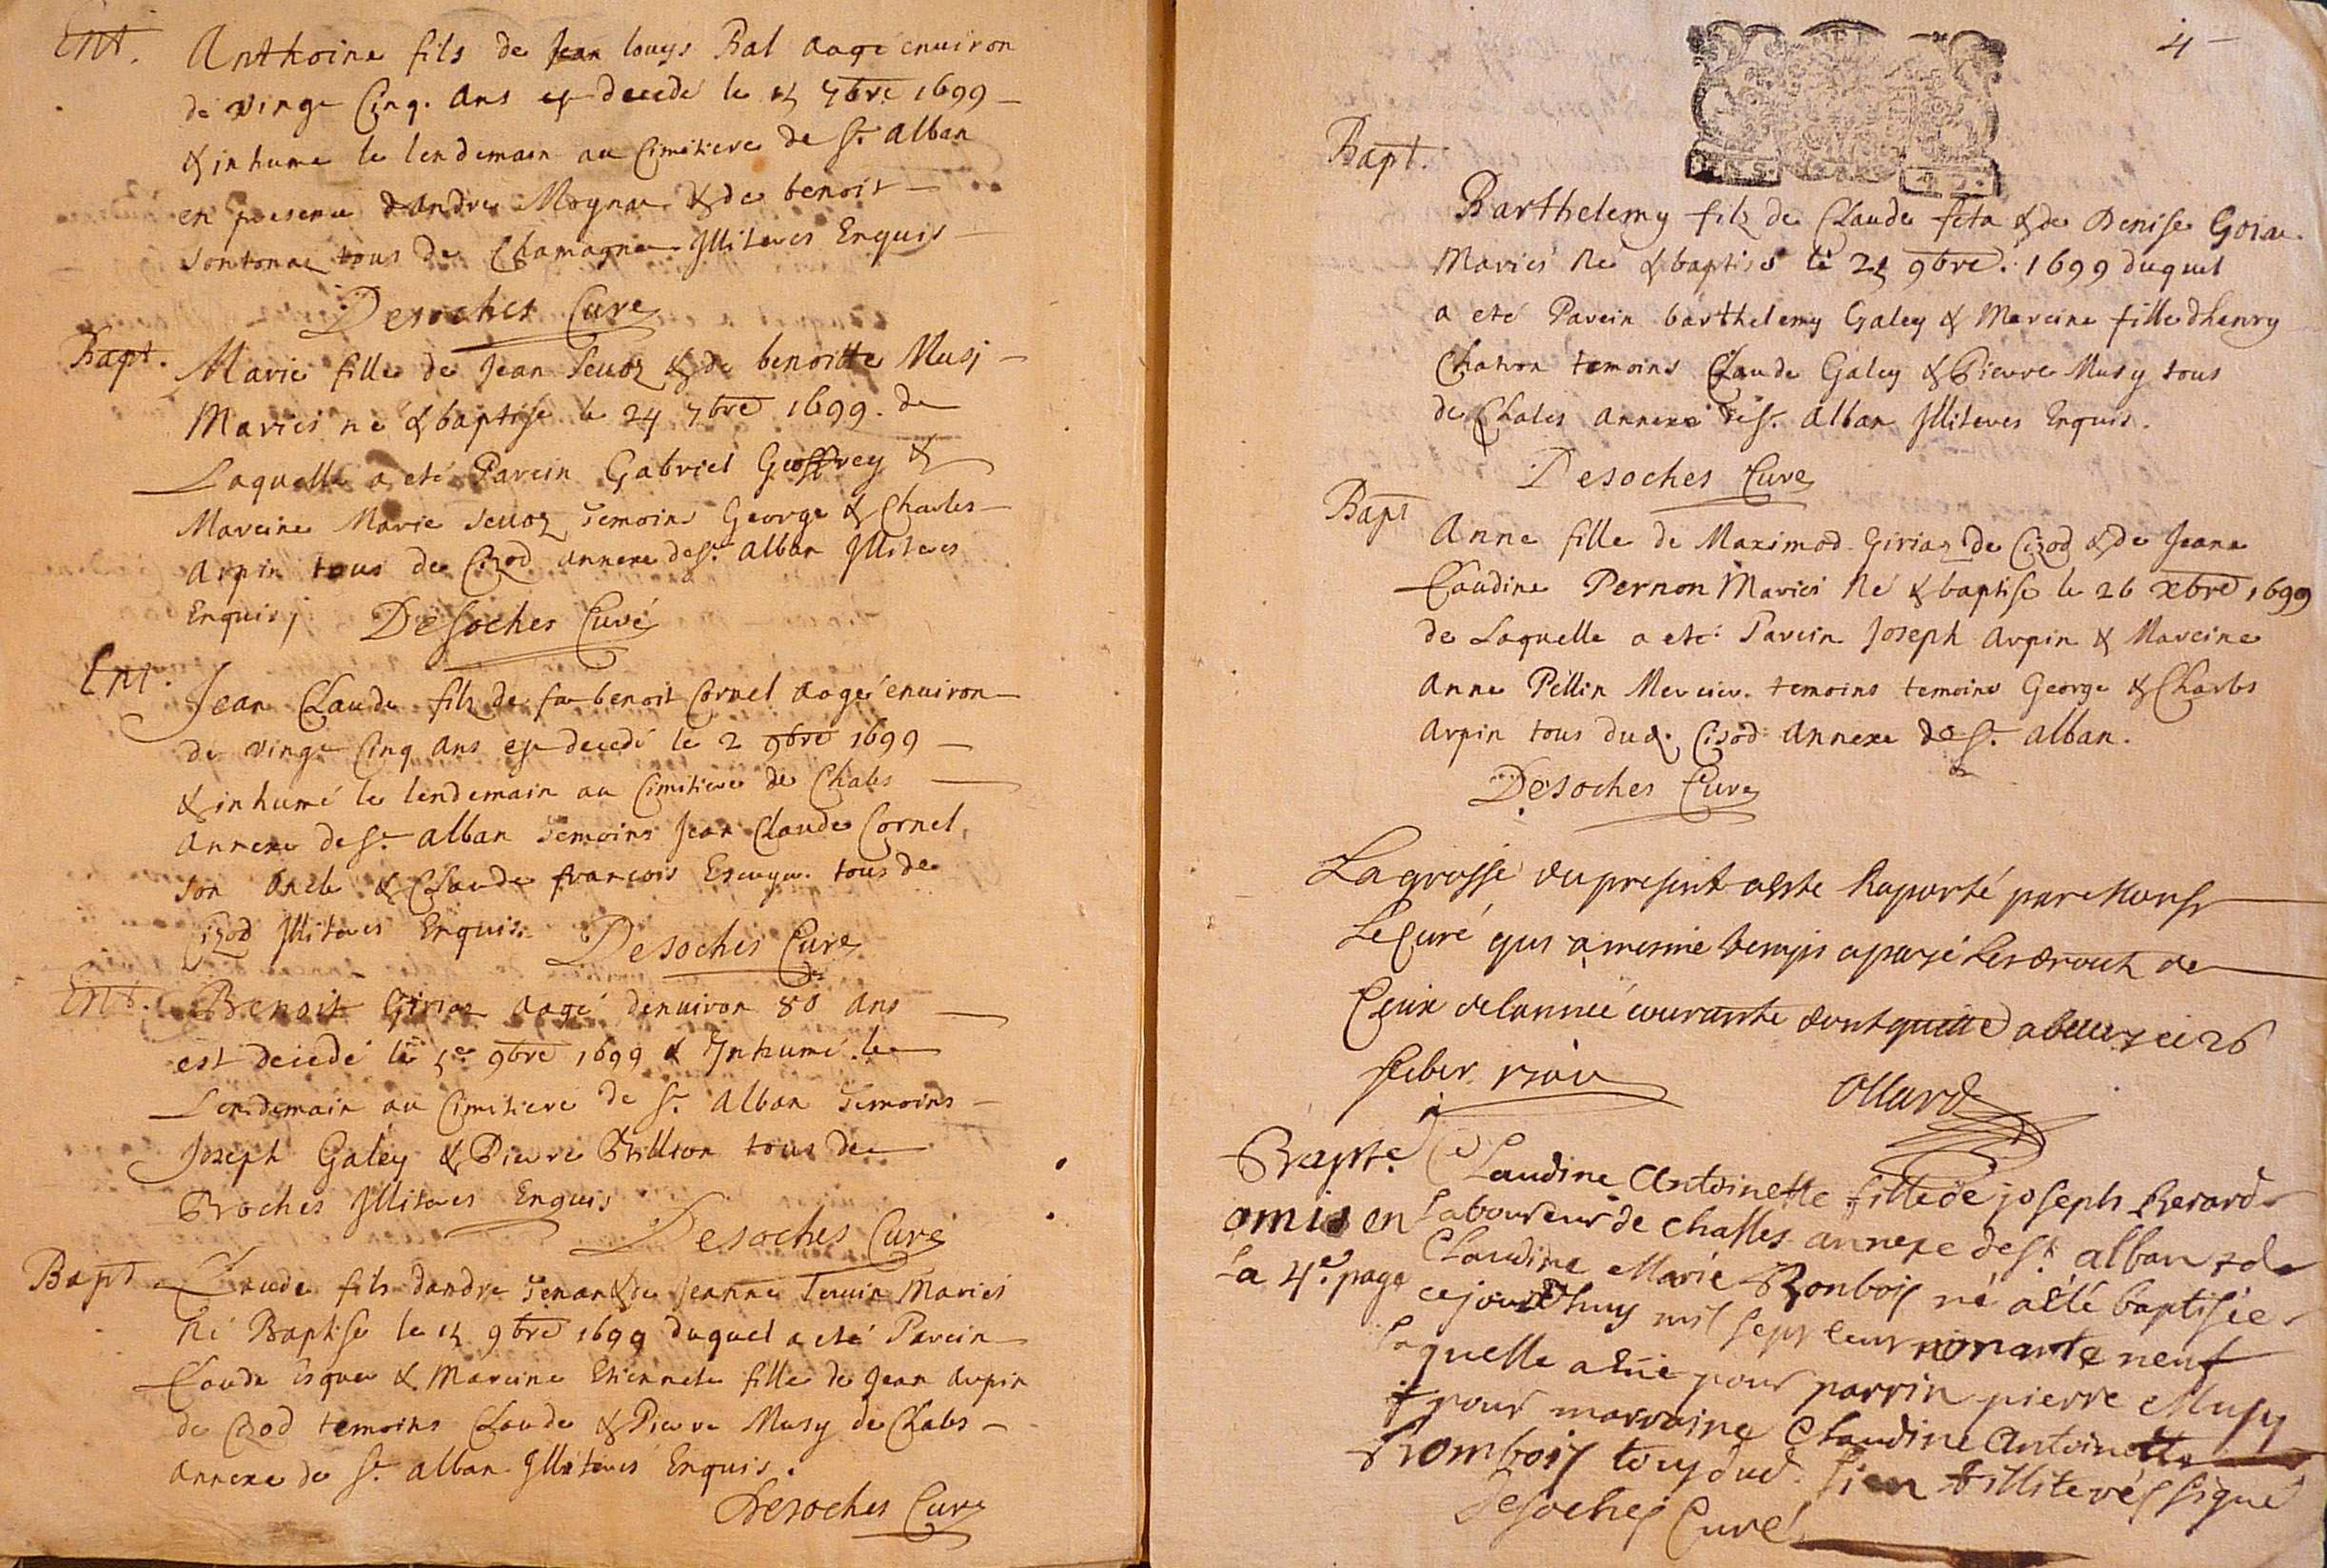 Ent. Anthoine fils de Jean louys Bal aagé enuiron
de vingt Cinq. ans est decedé le 15 7bre 1699
& inhume le lendemain au Cimitiere de St. alban
en presence dandre & de benoit
tous de Chamagne Illiteres Enquis
Desoches Cure
Bapt. Marie fille de Jean Seuoz & de benoitte Musj
Maries né & baptise le 24 7bre 1699. de
Laquelle a eté Parein Gabriel Geoffrey &
Mareine Marie Seuoz Temoins George & Charles
Arpin tous de Cizod annexe de St. alban Illiteres
Enquis, Desoches Curé
Ent. Jean Claude filz de fu benoit Cornel aagé enuiron
de vingt Cinq ans est decedé le 2 9bre 1699
& inhumé le lendemain au Cimitiere de Chales
Annexe de St. alban Temoins Jean Claude Cornel
son oncle & Claude francois tous de
Cizod Illiteres Enquis. Desoches Cure
Ent. Benoit Giriaz aagé denuiron 80 ans
est decedé le 5e 9bre 1699 & Inhumé le
Lendemain au Cimitiere de St. alban Temoins
Joseph Galey & Pierre Billion tous de
Broches Illiteres Enquis
Desoches Curé
Bapt Claude fils dandre & de Jeanne Maries
Né Baptise le 15 9bre 1699 duquel a eté Parein
Claude & Mareine Etiennete fille de Jean Arpin
de Cizod temoins Claude & Pierre Musy de Chales
annexe de St. alban Illiteres Enquis.
Desoches Cure
4
Bapt.
Barthelemy filz de Claude feta & de Denise
Maries Né & baptisé le 25 9bre. 1699 duquel
a eté Parein barthelemy Galey & Mareine fille dhenry
Chatron temoins Claude Galey & Pierre Musy tous
de Chales annexe de St. alban Illiteres Enquis.
Desoches Cure
Bapt Anne fille de Maximod Giriaz de Cizod & de Jeane
Claudine Pernon Maries Né & baptise le 26 xbre 1699
de Laquelle a eté Parein Joseph arpin & Mareine
Anne Pellin Mercier. temoins temoins George & Charles
Arpin tous dud. Cizod Annexe de St. alban.
Desoches Cure
La grosse du present a esté Raporté par Monsr
Le Curé qui a mesme temps a payé Les droict de
Ceux de lannée courante dont quitte a ce 26
Ollard
Bapte Claudine Antoinette fille de joseph Berard
omis en laboureur de Chasles annexe de St. alban & de
La 4e. page Claudine Marie Ronbois né a été baptisée
cejourdhuy mil sept cent nonante neuf
laquelle a eüe pour parrin pierre Musy
& pour marraine Claudine Antoinette
Rombois tous dud. lieu illiterés signé
Desoches Curé